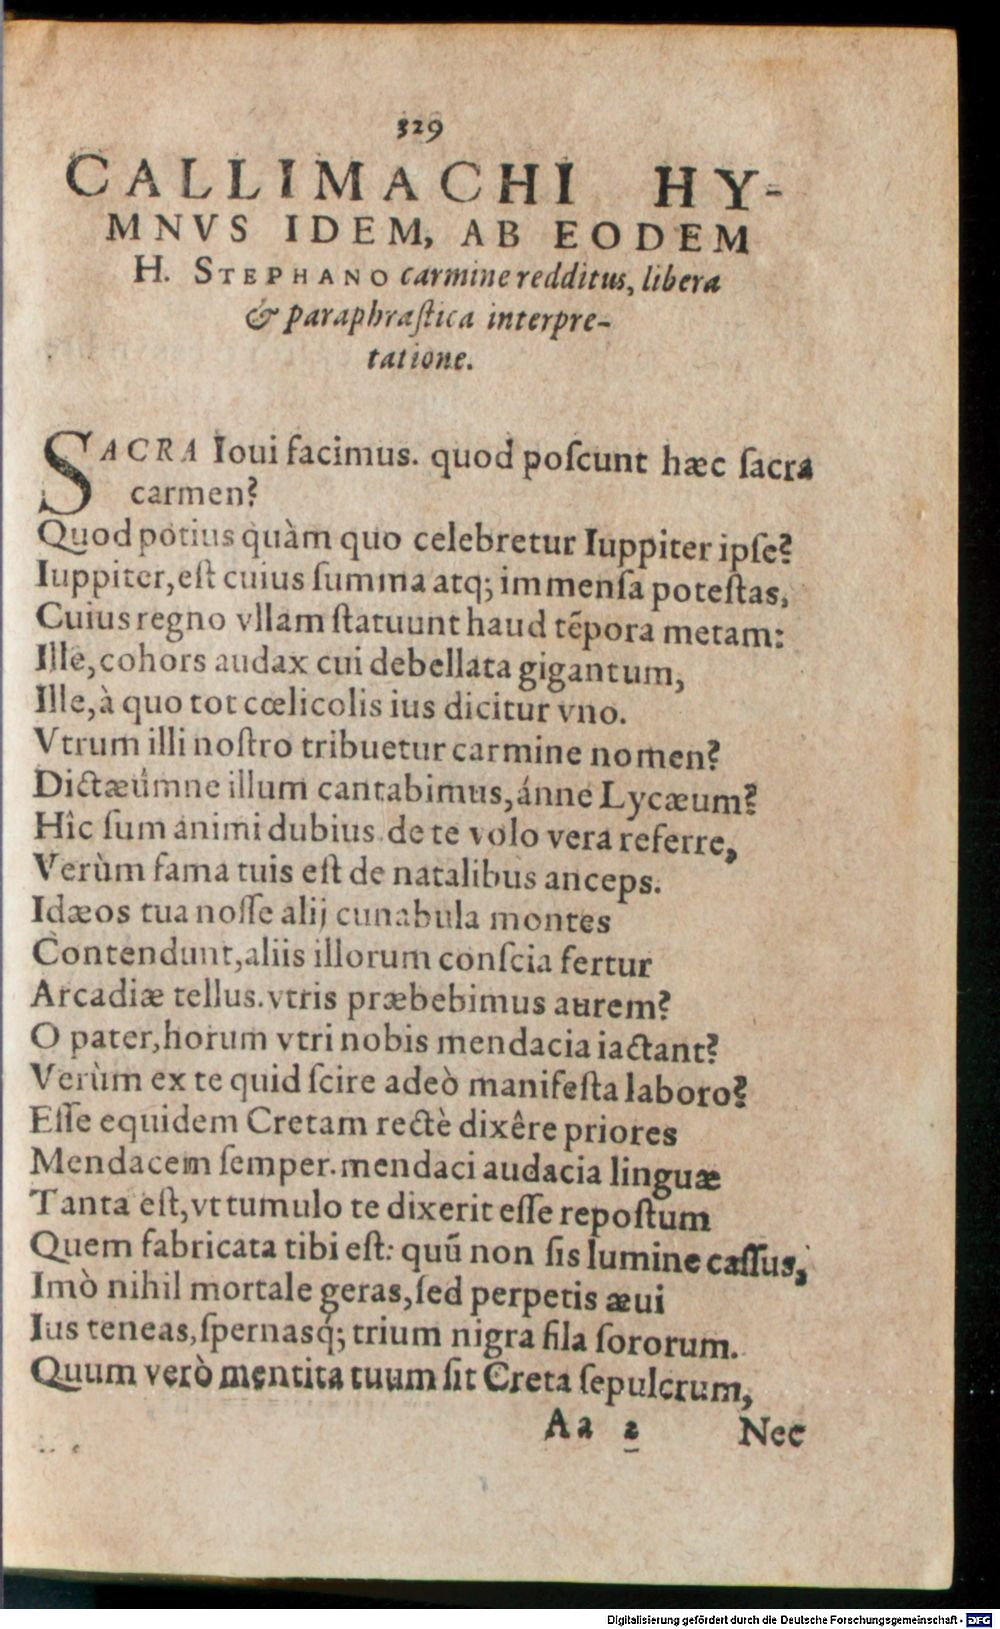 329
CALLIMACHI HY-
MNVS IDEM, AB EODEM
H. STEPHANO carmine redditus, libera
& paraphraſtica interpre-
tatione.
SACRA Ioui facimus. quod poſcunt hæc ſacra
carmen?
Quod potius quàm quo celebretur Iuppiter ipſe?
Iuppiter, eſt cuius ſumma atq; immenſa poteſtas,
Cuius regno vllam ſtatuunt haud tẽpora metam:
Ille, cohors audax cui debellata gigantum,
Ille, à quo tot cœlicolis ius dicitur vno.
Vtrum illi noſtro tribuetur carmine nomen?
Dictæúmne illum cantabimus, ánne Lycæum?
Hîc ſum animi dubius. de te volo vera referre,
Verùm fama tuis eſt de natalibus anceps.
Idæos tua noſſe alij cunabula montes
Contendunt, aliis illorum conſcia fertur
Arcadiæ tellus. vtris præbebimus aurem?
O pater, horum vtri nobis mendacia iactant?
Verùm ex te quid ſcire adeò manifeſta laboro?
Eſſe equidem Cretam rectè dixêre priores
Mendacem ſemper. mendaci audacia linguæ
Tanta eſt, vt tumulo te dixerit eſſe repoſtum
Quem fabricata tibi eſt: quũ non ſis lumine caſſus,
Imò nihil mortale geras, ſed perpetis æui
Ius teneas, ſpernasq́; trium nigra fila ſororum.
Quum verò mentita tuum ſit Creta ſepulcrum,
Aa 2 Nec
Digitalisierung gefördert durch die Deutsche Forschungsgemeinschaft - DFG